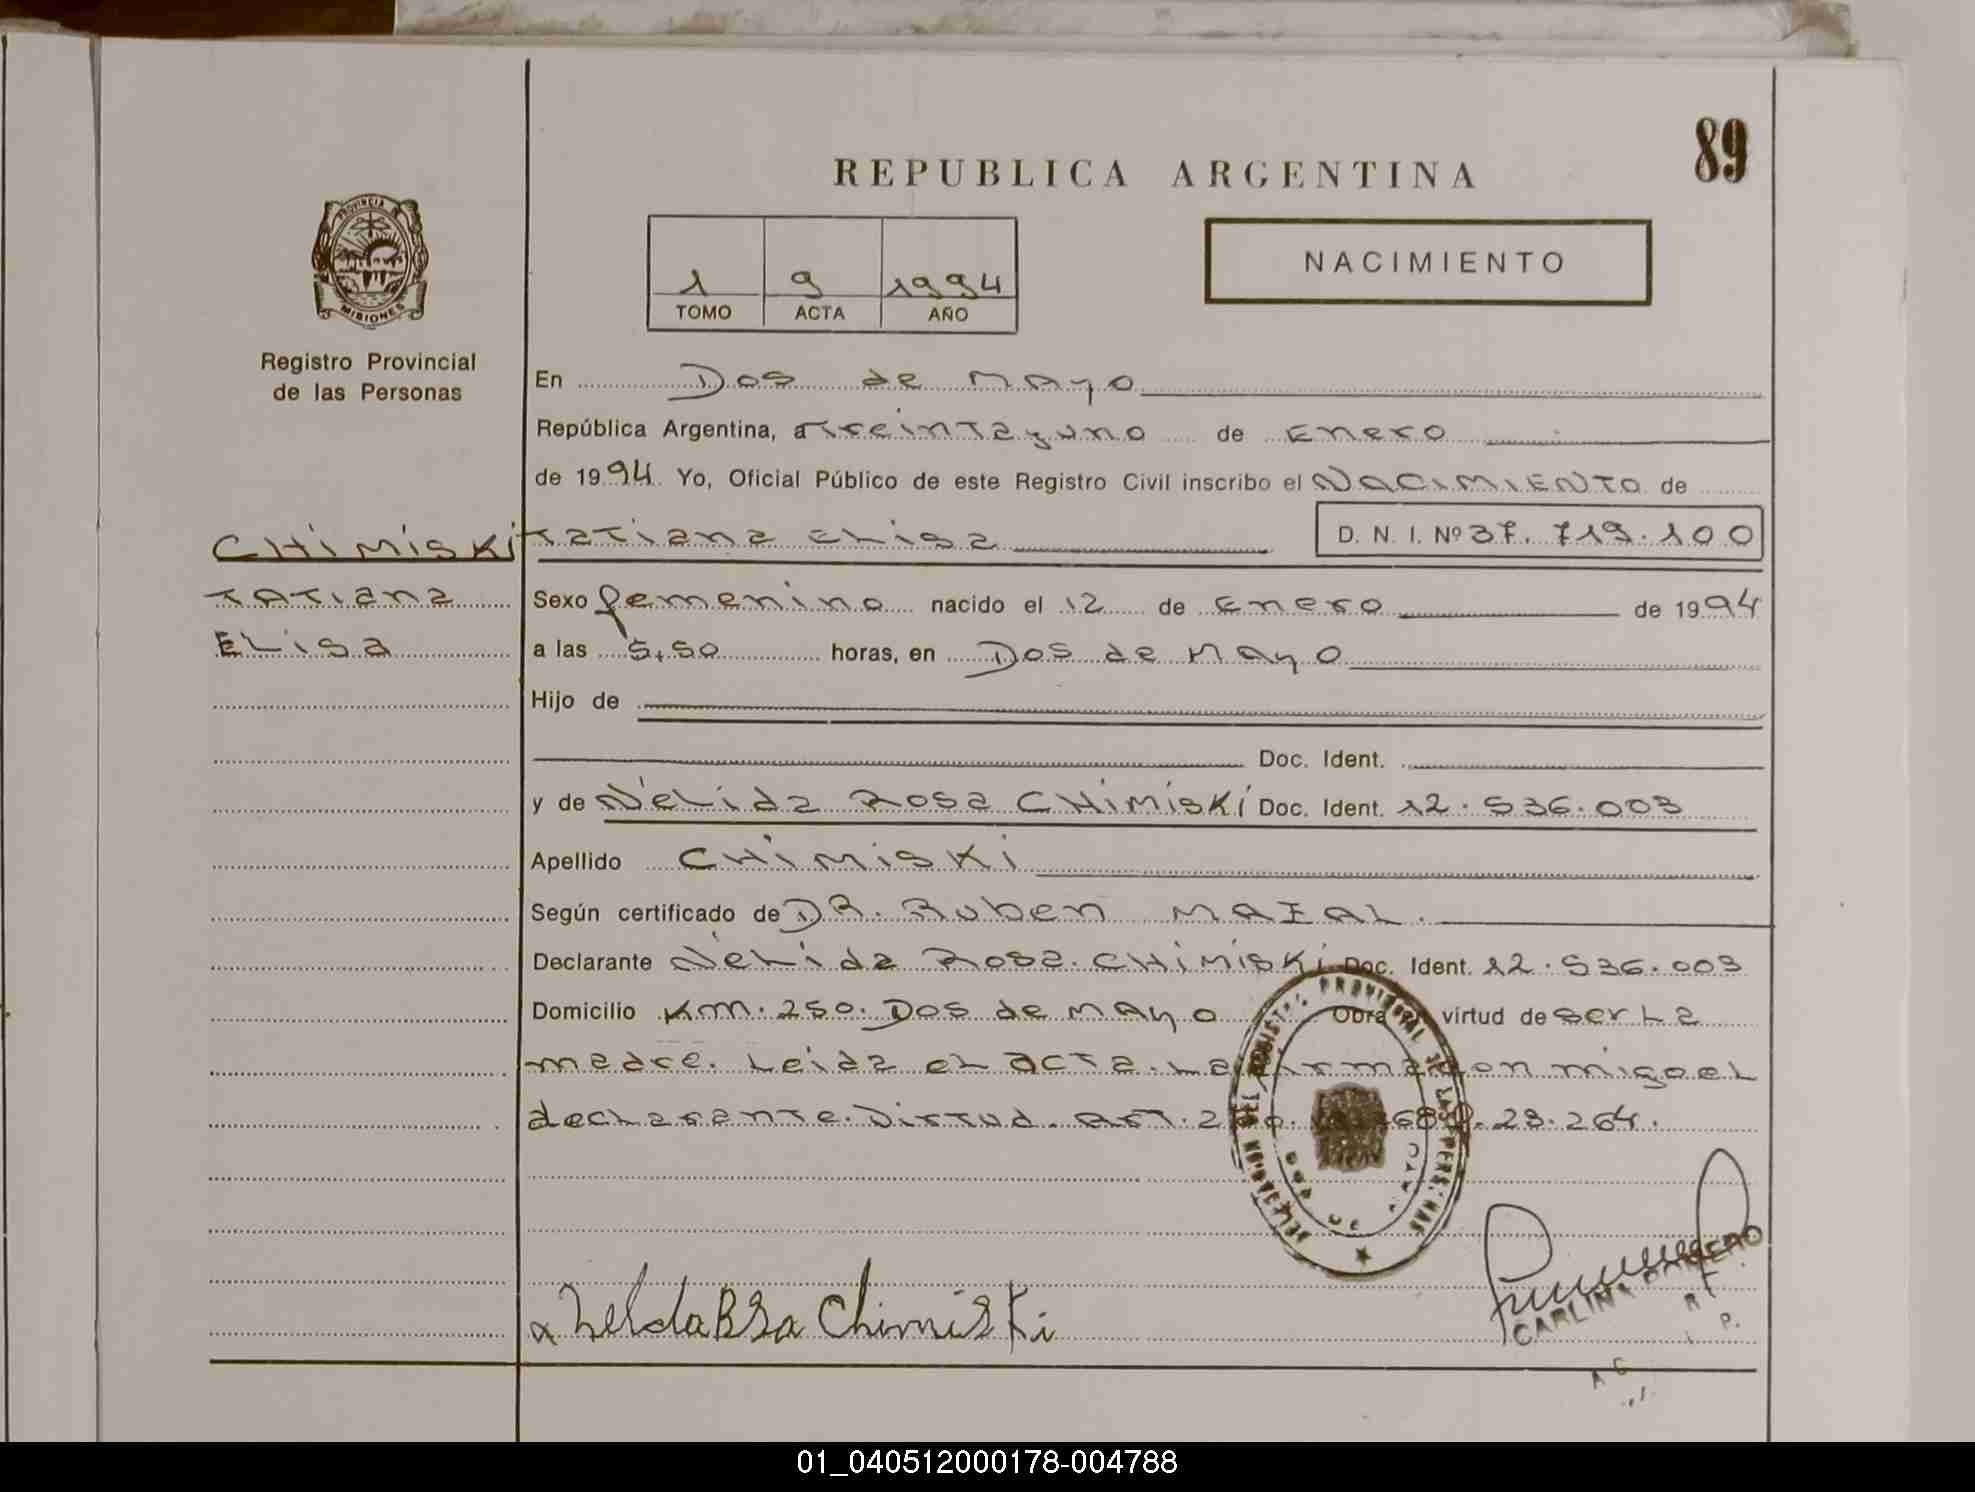 89
REPUBLICA ARGENTINA
PROVINCIA DE
MISIONES
1 9 1994
TOMO ACTA AÑO
NACIMIENTO
Registro Provincial
de las Personas
En Dos de Mayo
República Argentina, a treinta y uno de Enero
de 1994. Yo, Oficial Público de este Registro Civil inscribo el NACIMIENTO de
CHIMISKI
TATIANA
ELISA
TATIANA ELISA D. N. I. Nº 37.719.100
Sexo femenino nacido el 12 de Enero de 1994
a las 5,50 horas, en Dos de Mayo
Hijo de
Doc. Ident.
y de Nélida Rosa CHIMISKI Doc. Ident. 12.536.003
Apellido CHIMISKI
Según certificado de DR. Ruben
Declarante Nélida Rosa. CHIMISKI Doc. Ident. 12.536.003
Domicilio KM. 250. Dos de Mayo Obra en virtud de ser La
madre. Leida el acta. La firman conmigo el
declarante. Virtud. Art. 23.264.
DELEGACION DEL REGISTRO PROVINCIAL DE LAS PERSONAS
DOS DE MAYO
x Nelida Rosa Chimiski
01_040512000178-004788